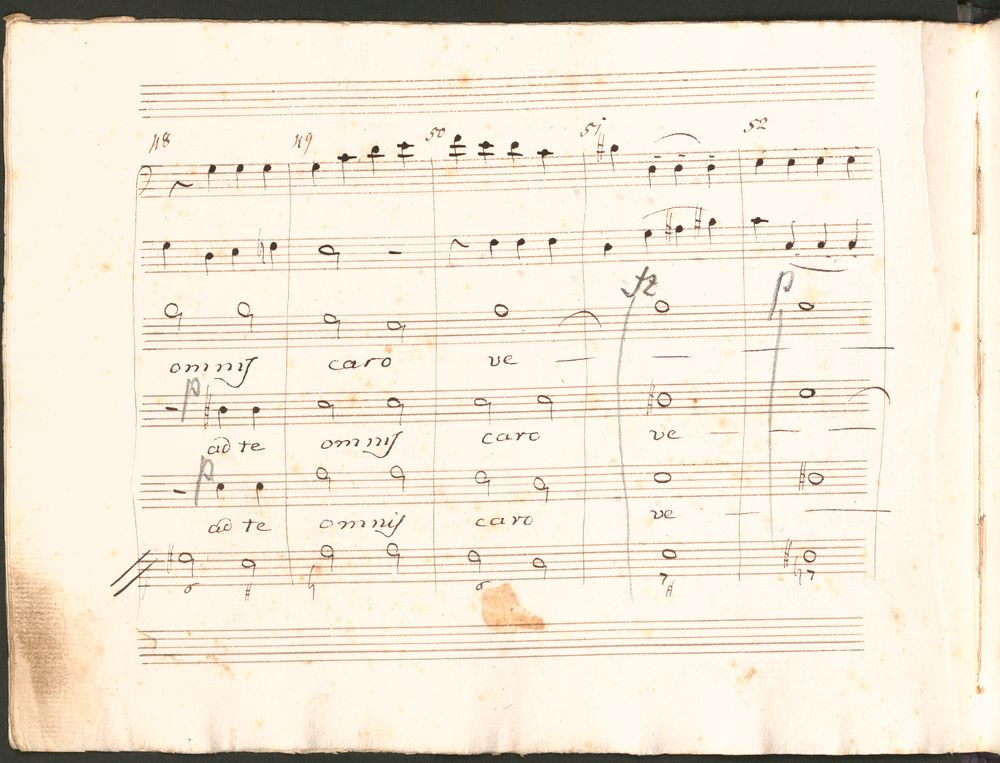 48 49 50 51 52
fz p
omnis caro ve
p
ad te omnis caro ve
p
ad te omnis caro ve
6 6 7 7